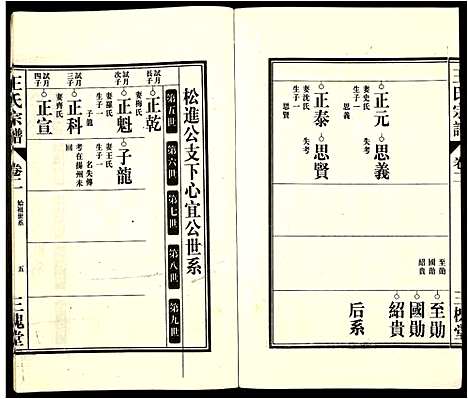 王氏宗譜
卷二
三槐堂
正元
妻史氏
生子一
思義
思義
失考
正泰
妻沈氏
生子一
思賢
思賢
失考
至勛
國勛
紹貴
至勛
國勛
紹貴
后系
松進公支下心宜公世系
第五世
第六世
第七世
第八世
第九世
正乾
試月
長子
妻梅氏
生子一
正魁
試月
次子
妻羅氏
生子一
子龍
子龍
妻王氏
生子一
名失傳
考在揚州未
回
正科
試月
三子
正宣
試月
四子
妻齊氏
王氏宗譜
卷二
始祖世系
五
三槐堂